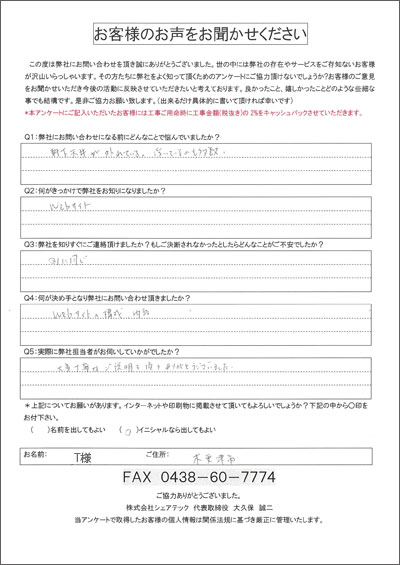 お客様のお声をお聞かせください
この度は弊社にお問い合わせを頂き誠にありがとうございました。世の中には弊社の存在やサービスをご存知ないお客様
が沢山いらっしゃいます。その方たちに弊社をよく知って頂くためのアンケートにご協力頂けないでしょうか?お客様のご意見
をお聞かせいただき今後の活動に反映させていただきたいと考えております。良かったこと、嬉しかったことどのような些細な
事でも結構です。是非ご協力お願い致します。(出来るだけ具体的に書いて頂ければ幸いです)
*本アンケートにご記入いただいたお客様には工事ご用命時に工事金額(税抜き)の2%をキャッシュバックさせていただきます。
Q1:弊社にお問い合わせになる前にどんなことで悩んでいましたか?
軒下天井が外れている。
Q2:何がきっかけで弊社をお知りになりましたか?
Webサイト
Q3:弊社を知りすぐにご連絡頂けましたか?もしご決断されなかったとしたらどんなことがご不安でしたか?
Q4:何が決め手となり弊社にお問い合わせ頂きましたか?
Webサイトの構成 内容
Q5:実際に弊社担当者がお伺いしていかがでしたか?
大変丁寧なご説明を頂きありがとうございました。
*上記についてお願いがあります。インターネットや印刷物に掲載させて頂いてもよろしいでしょうか?下記の中から〇印を
お付下さい。
( )名前を出してもよい (○)イニシャルなら出してもよい
お名前: T様 ご住所: 木更津市
FAX 0438-60-7774
ご協力ありがとうございました。
株式会社シェアテック 代表取締役 大久保 誠二
当アンケートで取得したお客様の個人情報は関係法規に基づき厳正に管理いたします。